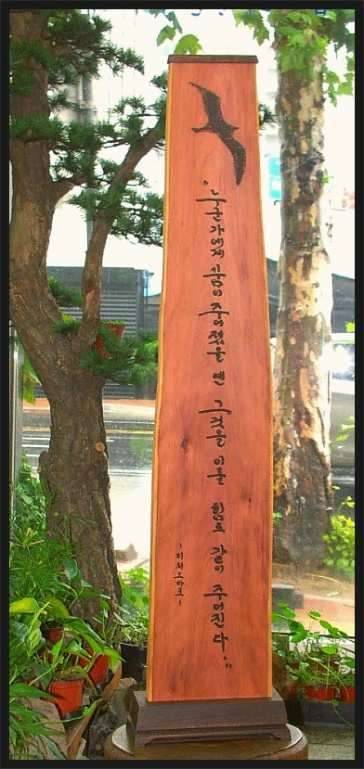 "누군가에게 꿈이 주어졌을 땐 그것을 이룰 힘도 같이 주어진다."
- 리처드 바크 -